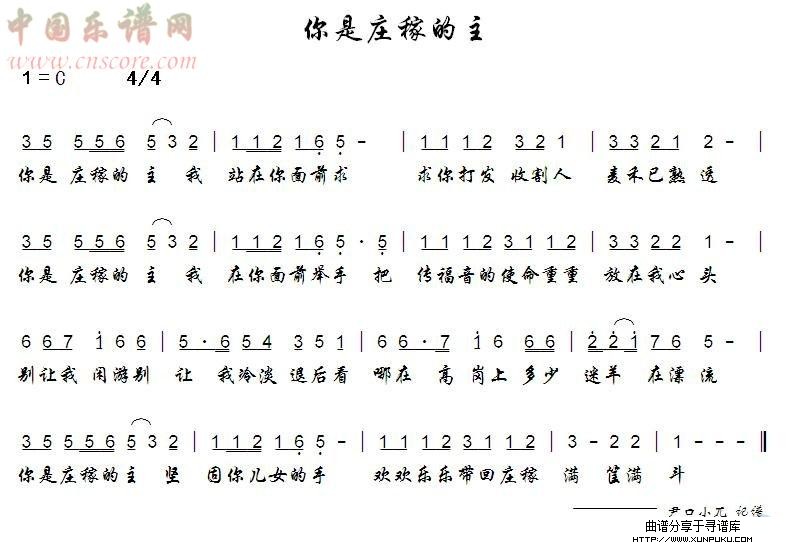 中国乐谱网
www.cnscore.com
你是庄稼的主
1=C 4/4
3 5 5 5 6 5 3 2 | 1 1 2 1 6 5 - | 1 1 1 2 3 2 1 | 3 3 2 1 2 - |
你是 庄稼的 主 我 站在你面前求 求你打发 收割人 麦禾已熟 透
3 5 5 5 6 5 3 2 | 1 1 2 1 6 5 · 5 | 1 1 1 2 3 1 1 2 | 3 3 2 2 1 - |
你是 庄稼的 主 我 在你面前举手 把 传福音的使命重重 放在我心头
6 6 7 1 6 6 | 5 · 6 5 4 3 5 1 | 6 6 · 7 1 6 6 6 | 2 2 1 7 6 5 - |
别让我 闲游别 让 我冷淡 退后看 哪在 高 岗上 多少 迷羊 在漂流
3 5 5 5 6 5 3 2 | 1 1 2 1 6 5 - | 1 1 1 2 3 1 1 2 | 3 - 2 2 | 1 - - - ‖
你是庄稼的主 坚 固你儿女的手 欢欢乐乐带回庄稼 满 筐满 斗
———— 尹口小兀 记谱
曲谱分享于寻谱库
HTTP://WWW.XUNPUKU.COM